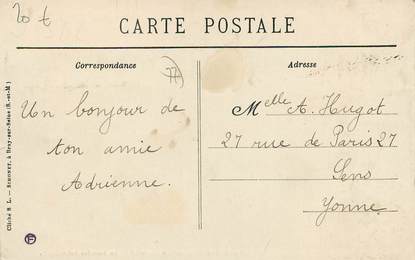 20 t
CARTE POSTALE
Correspondance
Adresse
Un bonjour de
ton amie
Adrienne.
Melle A. Hugot
27 rue de Paris 27
Sens
Yonne
Cliché S. L. — à Bray-sur-Seine (S.-et-M.)